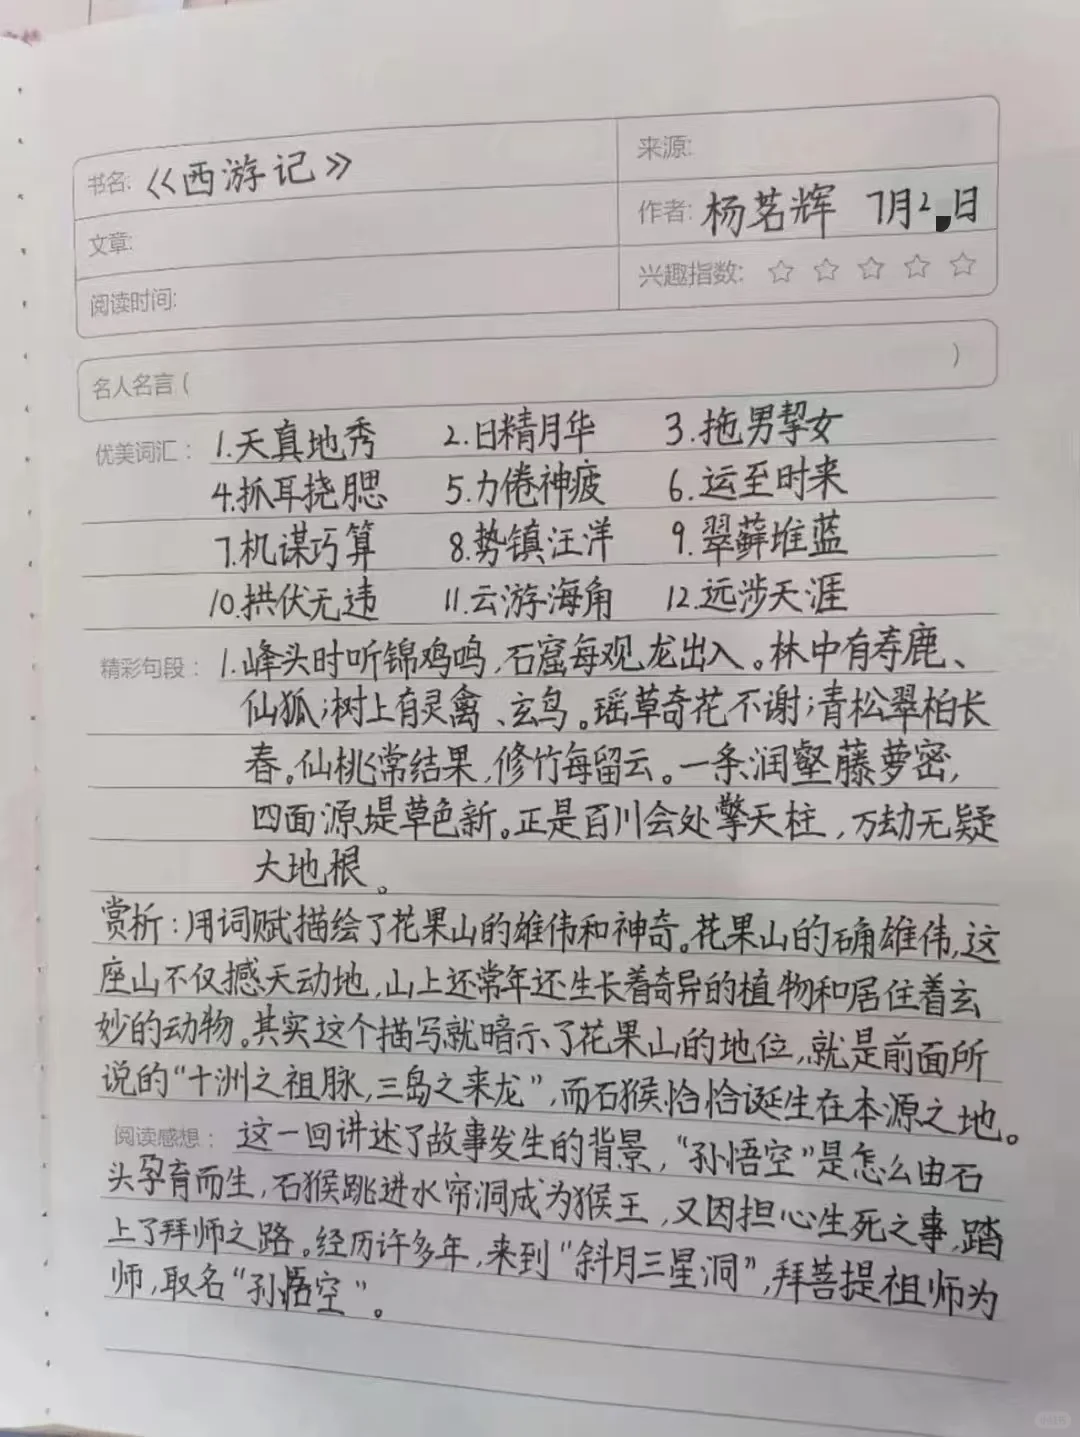 书名: 《西游记》
来源:
作者: 杨茗辉 7月2 日
文章:
兴趣指数: ☆ ☆ ☆ ☆ ☆
阅读时间:
名人名言 ( )
优美词汇: 1.天真地秀 2.日精月华 3.拖男挈女
4.抓耳挠腮 5.力倦神疲 6.运至时来
7.机谋巧算 8.势镇汪洋 9.翠藓堆蓝
10.拱伏无违 11.云游海角 12.远涉天涯
精彩句段: 1.峰头时听锦鸡鸣,石窟每观龙出入。林中有寿鹿、
仙狐;树上有灵禽、玄鸟。瑶草奇花不谢;青松翠柏长
春。仙桃常结果,修竹每留云。一条润壑藤萝密,
四面源堤草色新。正是百川会处擎天柱,万劫无疑
大地根。
赏析:用词赋描绘了花果山的雄伟和神奇。花果山的确雄伟,这
座山不仅撼天动地,山上还常年还生长着奇异的植物和居住着玄
妙的动物。其实这个描写就暗示了花果山的地位,就是前面所
说的“十洲之祖脉,三岛之来龙”,而石猴恰恰诞生在本源之地。
阅读感想: 这一回讲述了故事发生的背景,“孙悟空”是怎么由石
头孕育而生,石猴跳进水帘洞成为猴王,又因担心生死之事,踏
上了拜师之路。经历许多年,来到“斜月三星洞”,拜菩提祖师为
师,取名“孙悟空”。